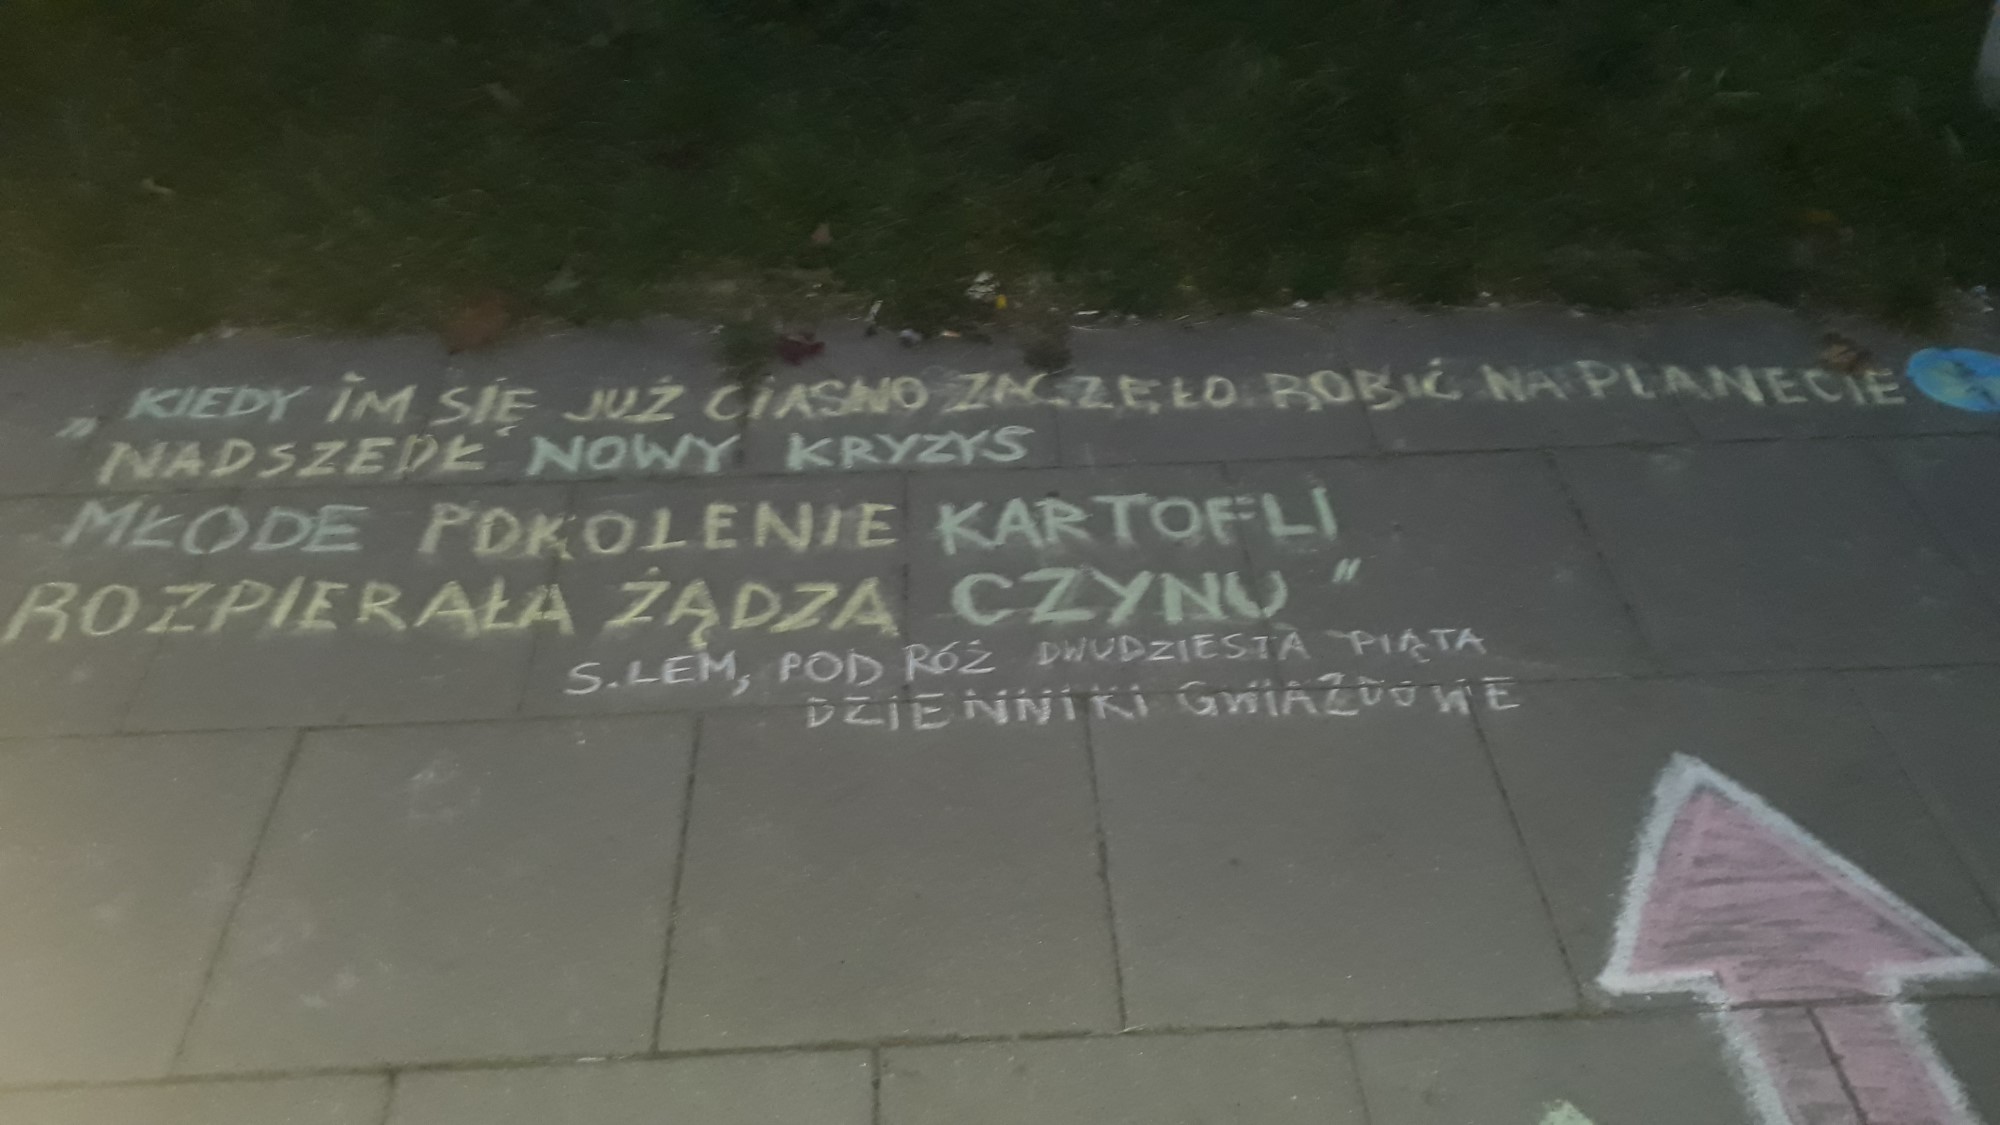 „KIEDY IM SIĘ JUŻ CIASNO ZACZĘŁO ROBIĆ NA PLANECIE
NADSZEDŁ NOWY KRYZYS
MŁODE POKOLENIE KARTOFLI
ROZPIERAŁA ŻĄDZA CZYNU"
S.LEM, POD RÓŻ DWUDZIESTA PIĄTA
DZIENNIKI GWIAZDOWE